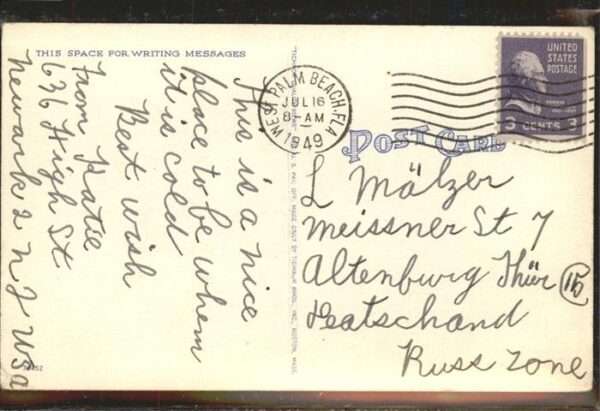 THIS SPACE FOR WRITING MESSAGES
This is a nice
place to be whem
it is cold
Best wish
From Katie
636 High St.
Newark 2 N J USa
WEST PALM BEACH, FLA.
JUL 16
8-AM
1949
UNITED
STATES
POSTAGE
3 CENTS 3
POST CARD
L Mälzer
Meissner St 7
Altenburg Thür 15
Deatschand
Russ Zone